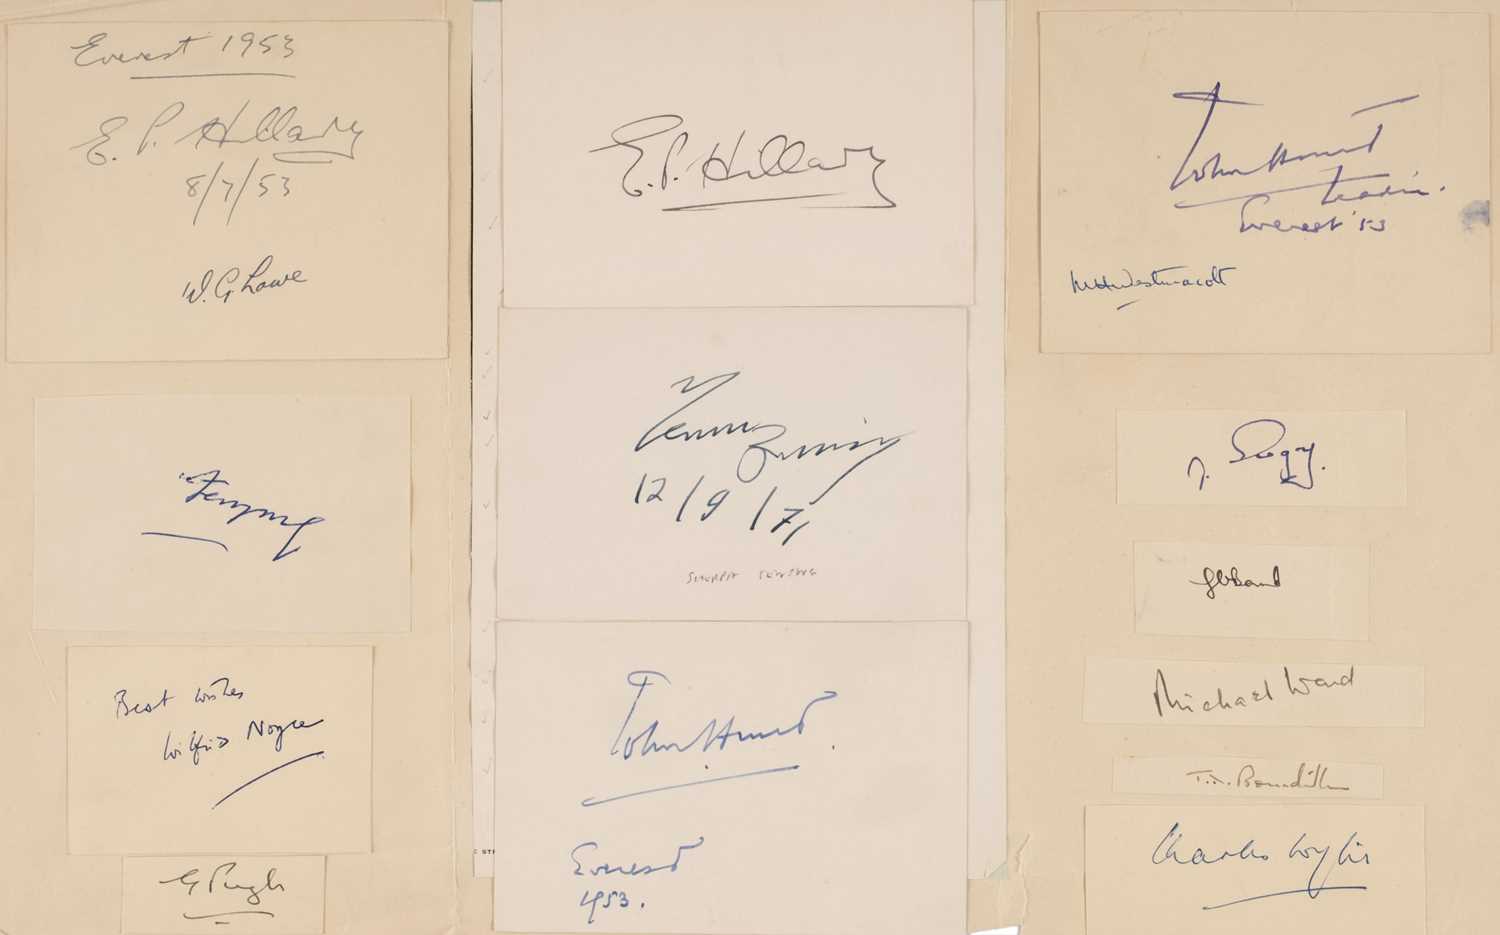 Everest 1953
E. P. Hillary
8/7/53
W. G. Lowe
Tenzing
Best wishes
Wilfrid Noyce
G Pugh
E. P. Hillary
12/9/71
SHERPA TENSING
John Hunt
Everest
1953.
John Hunt
Leader.
Everest '53
MHWestmacott
J.
GCBand
Michael Ward
T.D. Bourdillon
Charles Wylie